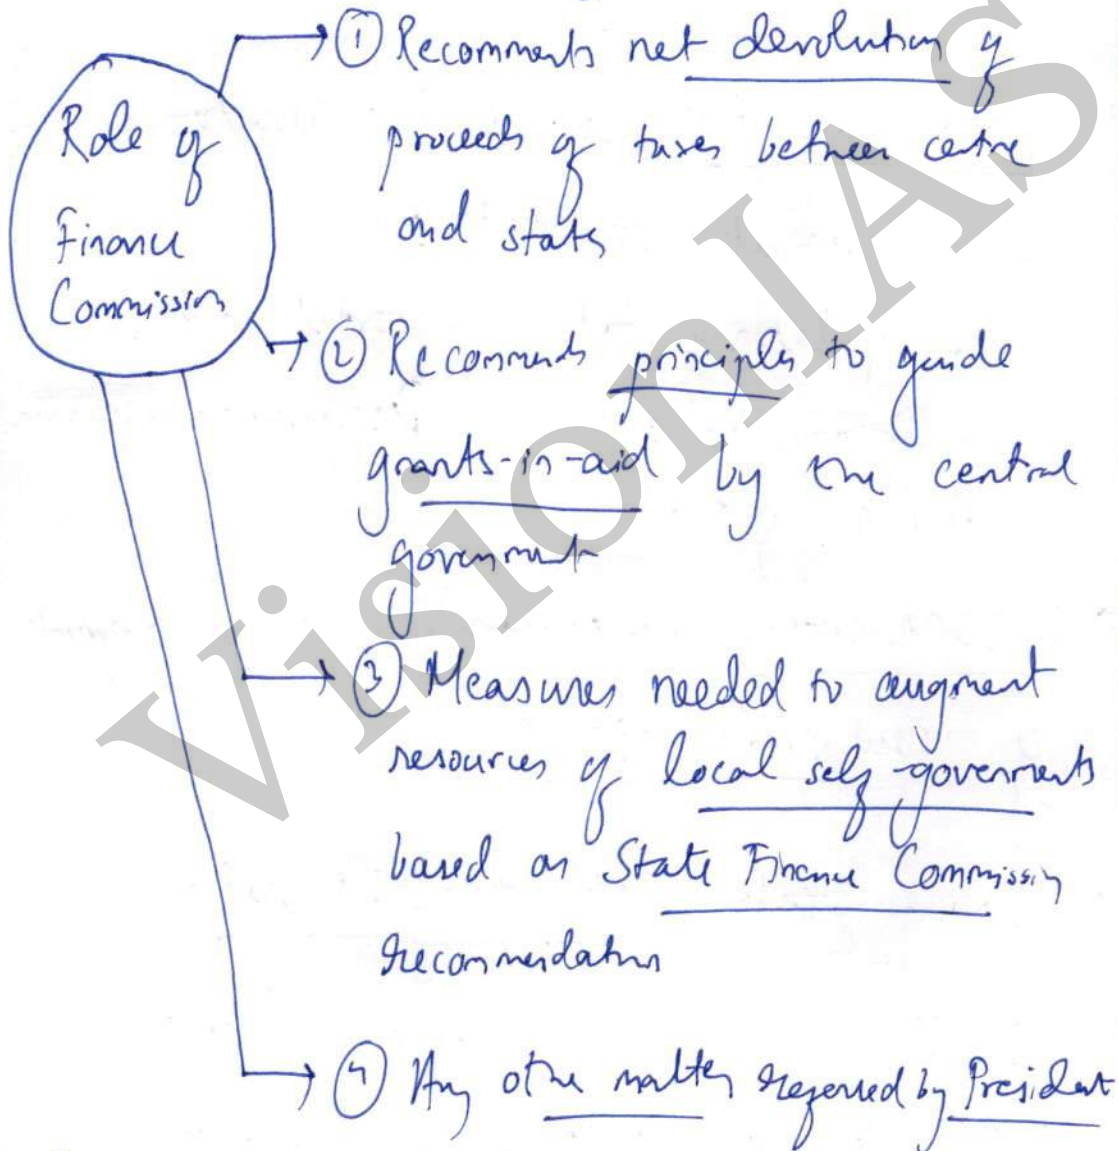 Role of
Finance
Commission
① Recomments net devolution of
proceeds of taxes between centre
and states
② Recommends principles to guide
grants-in-aid by the central
government
③ Measures needed to augment
resources of local self-governments
based on State Finance Commission
recommendations
④ Any other matter referred by President
VisionIAS